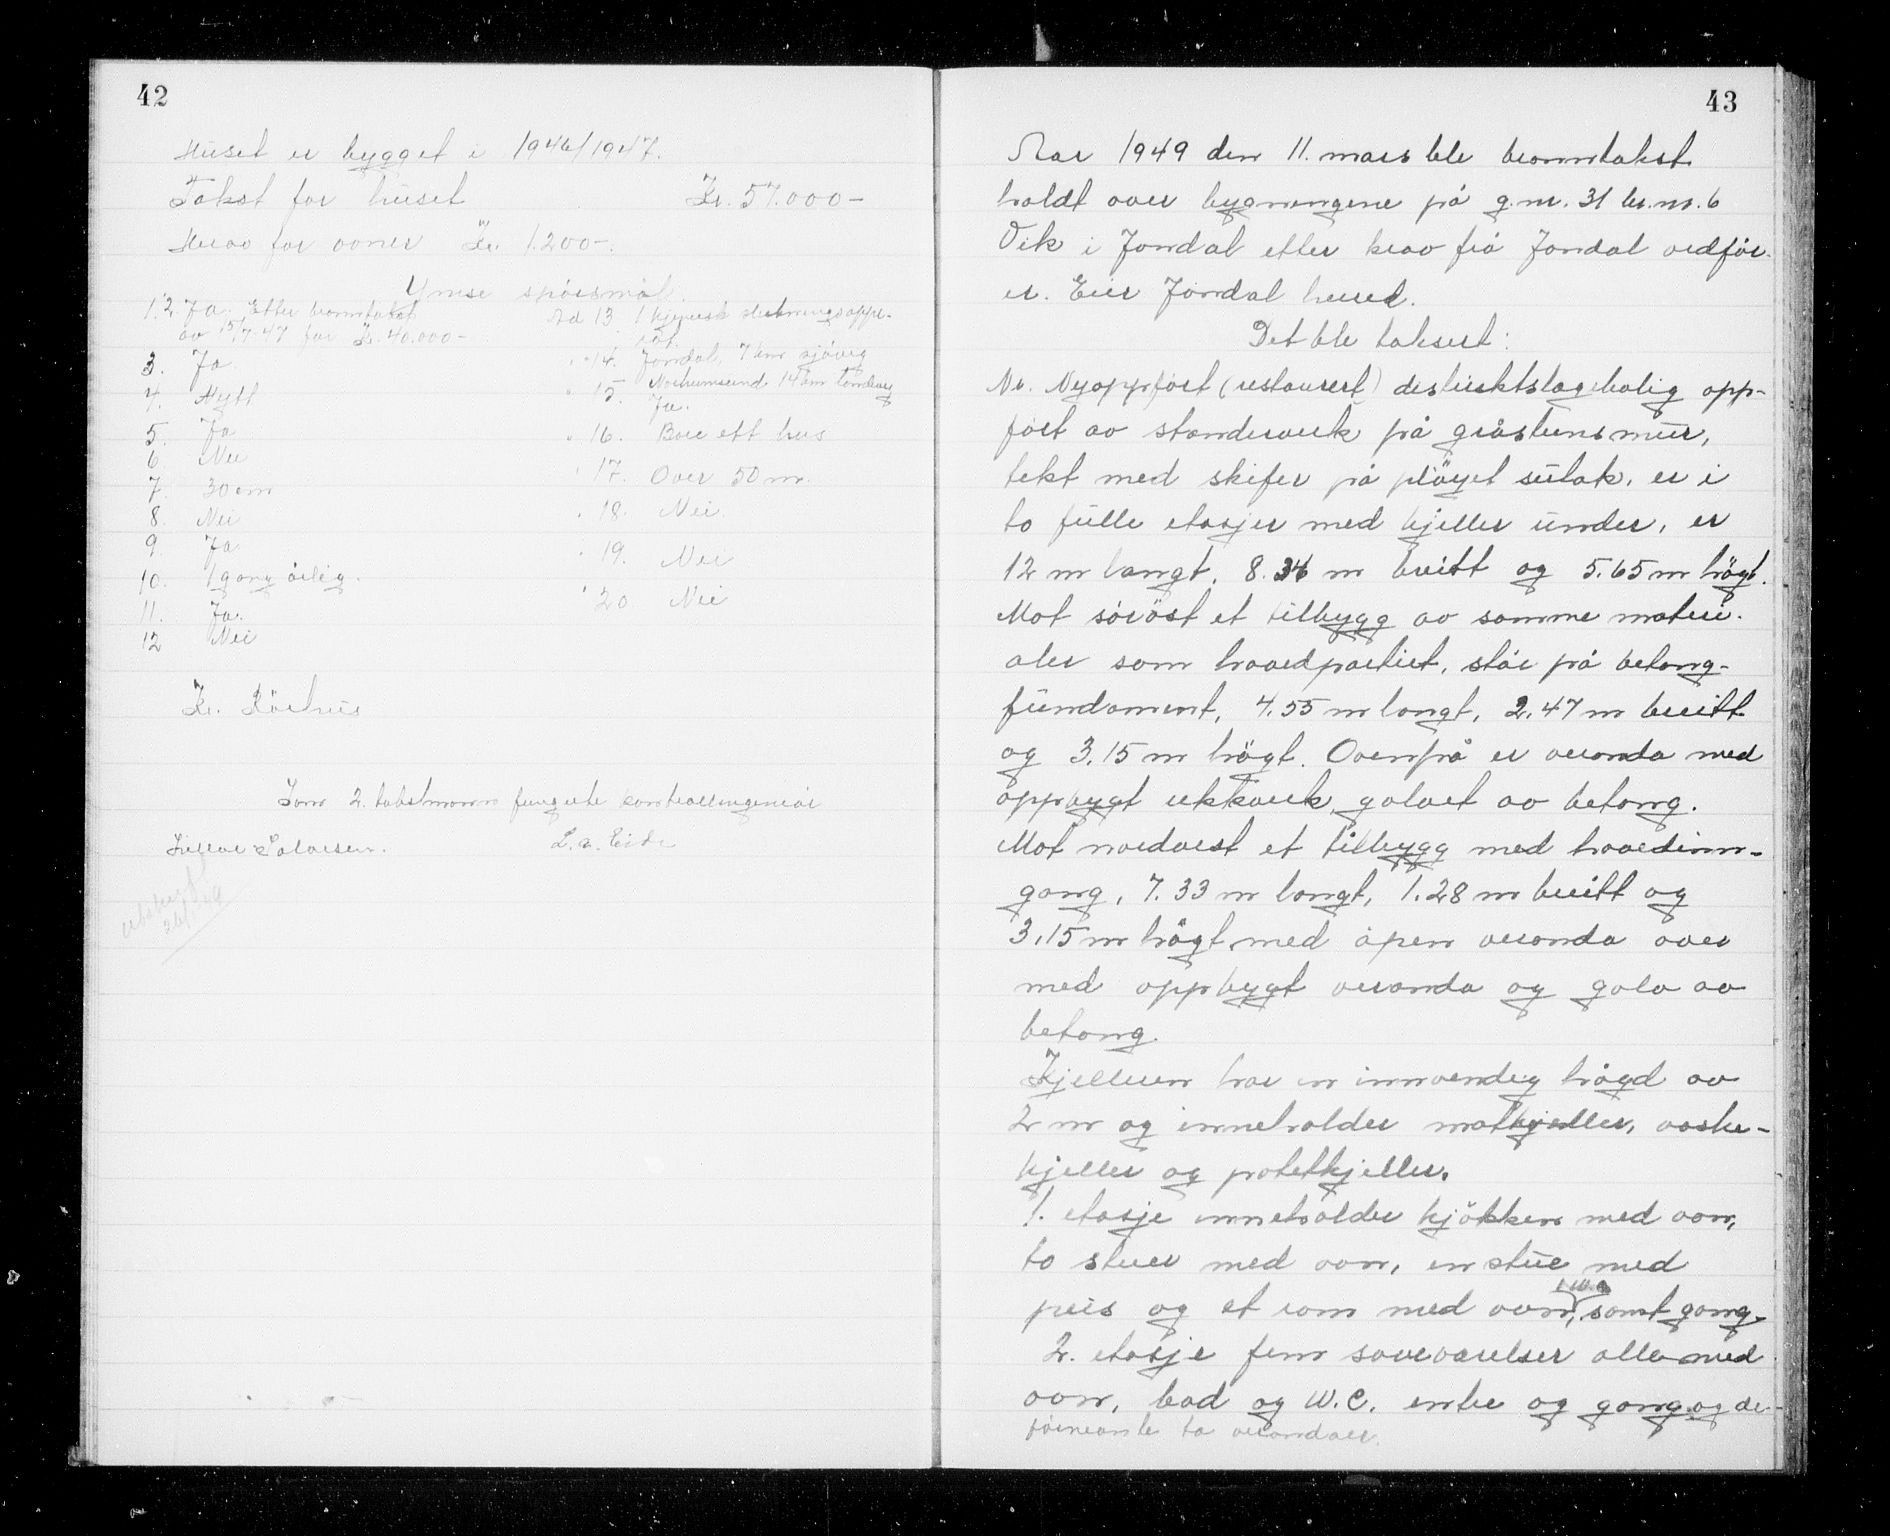 42
Huset er bygget i 1946/1947.
Takst for huset Kr. 57.000-
Herav for ovner Kr. 1.200-.
Ymse spörsmål.
1.2. Ja. Etter branntakst
av 15/7-47 for Kr. 40.000-
3. Ja
4. Nytt
5. Ja
6. Nei
7. 30 cm
8. Nei
9. Ja
10. 1 gang årlig.
11. Ja.
12 Nei
Ad 13. 1 kjemisk slukningsappa-
rat.
" 14. Jondal, 7 km sjöveg
Norheimsund 14 km landveg
" 15. Ja.
" 16. Bare ett hus
" 17. Over 50 m.
" 18. Nei.
" 19. Nei
" 20 Nei
Kr. Börhus
Som 2. takstmann fungerte kontrollingeniör
Salvesen. L. A. Eide
43
Aar 1949 den 11. mars ble branntakst
holdt over bygningene på g.nr. 31 br.nr. 6
Vik i Jondal etter krav frå Jondal ordför-
er. Eier Jondal herred.
Det ble taksert:
Nr. Nyoppfört (restaurert) distriktslegebolig opp-
fört av standerverk på gråsteinsmur,
tekt med skifer på pløyet sutak, er i
to fulle etasjer med kjeller under, er
12 m langt, 8.34 m breitt og 5.65 m högt.
Mot söröst et tilbygg av samme materi-
aler som hovedpartiet, står på betong-
fundament, 4.55 m langt, 2.47 m breitt
og 3.15 m högt. Ovenpå er veranda med
oppbygt rekkverk, golvet av betong.
Mot nordvest et tilbygg med hovedinn-
gang, 7.33 m langt, 1.28 m breitt og
3.15 m högt med åpen veranda over
med oppbygt veranda og golv av
betong.
Kjelleren har en innvendig högd av
2 m og inneholder matkjeller, vaske-
kjeller og potetkjeller.
1. etasje inneholder kjökken med ovn,
to stuer med ovn, en stue med
peis og et rom med ovn, 1 W.C. samt gang.
2. etasje fem soveværelser alle med
ovn, bad og W.C. entre og gang og de
förnevnte to verandaer.